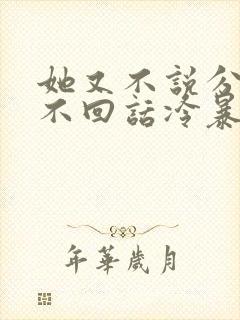 她又不說分
不回話冷暴
年華歲月